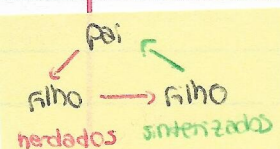 Pai
Filho Filho
herdados sinterizados